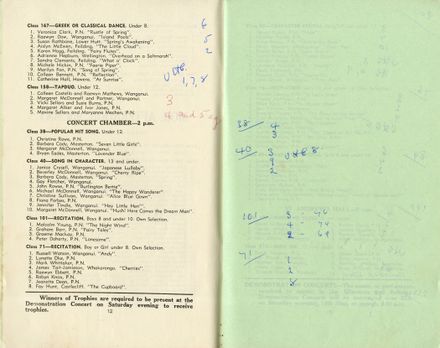 Class 167—GREEK OR CLASSICAL DANCE. Under 8.
1. Veronica Clark, P.N. "Rustle of Spring".
2. Raewyn Dow, Wanganui. "Island Pools".
3. Susan Rathbone, Lower Hutt. "Spring's Awakening".
4. Aislyn McEwen, Feilding. "The Little Cloud".
5. Karen Hogg, Feilding. "Fairy Flutes".
6. Adrienne Hepburn, Wellington. "Overheard on a Saltmarsh".
7. Sandra Clements, Feilding. "What o' Clock".
8. Michele Hickin, P.N. "Faerie Piper".
9. Marilyn Fen, P.N. "Song of Spring".
10. Colleen Bennett, P.N. "Reflection".
11. Catherine Hall, Hawera. "At Sunrise".
6
5
2
V.H.C.
1, 7, 8
Class 158—TAPDUO. Under 12.
1. Colleen Costello and Raewyn Mathews, Wanganui.
2. Margaret McDonnell and Partner, Wanganui.
3. Vicki Sellars and Suzie Burns, P.N.
4. Margaret Alister and Ivor Jones, P.N.
5. Maxine Sellars and Maryanne Mechen, P.N.
3
4 and 5
CONCERT CHAMBER—2 p.m.
Class 38—POPULAR HIT SONG. Under 12.
1. Christine Bowe, P.N.
2. Barbara Cody, Masterton. "Seven Little Girls".
3. Margaret McDonnell, Wanganui.
4. Bryan Eades, Masterton. "Lavender Blue".
Class 40—SONG IN CHARACTER. 13 and under.
1. Janice Crysell, Wanganui. "Japanese Lullaby".
2. Beverley McDonnell, Wanganui. "Cherry Ripe".
3. Barbara Cody, Masterton. "Spring".
4. Gay Fletcher, Wanganui.
5. John Rowe, P.N. "Burlington Bertie".
6. Michael McDonnell, Wanganui. "The Happy Wanderer".
7. Christine Sullivan, Wanganui. "Alice Blue Gown".
8. Fiona Forbes, P.N.
9. Jennifer Tindle, Wanganui. "Hey Little Hen".
10. Margaret McDonnell, Wanganui. "Hush! Here Comes the Dream Man".
Class 101—RECITATION. Boys 8 and under 10. Own Selection.
1. Malcolm Young, P.N. "The Night Wind".
2. Graham Barr, P.N. "Fairy Tales".
3. Graeme Mackay, P.N.
4. Peter Doherty, P.N. "Lonesome".
Class 71—RECITATION. Boy or Girl under 8. Own Selection.
1. Russell Watson, Wanganui. "Andy".
2. Lynette Oke, P.N.
3. Mark Whittaker, P.N.
4. James Tait-Jamieson, Whakaronga. "Cherries".
5. Raewyn Ebbett, P.N.
6. Robyn Knox, P.N.
7. Jeanette Dean, P.N.
8. Fay Hunt, Castlecliff. "The Cupboard".
Winners of Trophies are required to be present at the
Demonstration Concert on Saturday evening to receive
trophies.
12
38
4
3
40
3
VHC 8
2
101
3
4
2
71
1
2
8